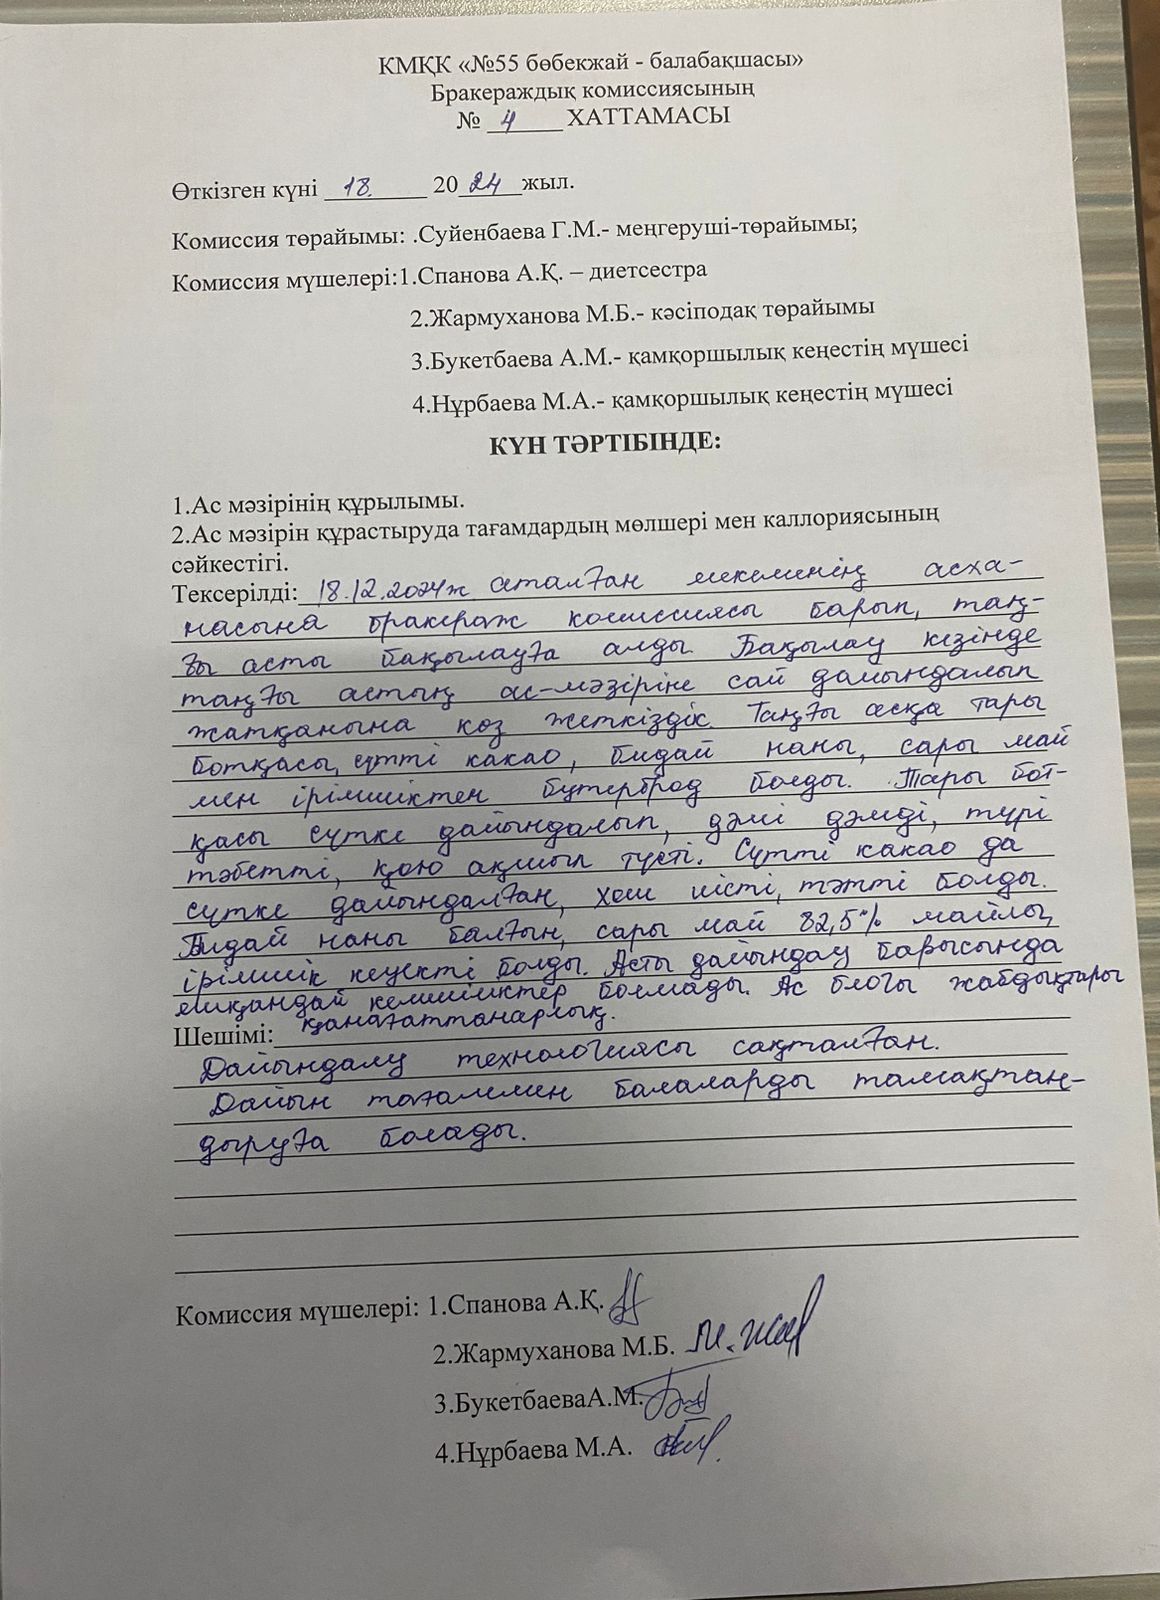 КМҚК «№55 бөбекжай - балабақшасы»
Бракераждық комиссиясының
№ 4 ХАТТАМАСЫ
Өткізген күні 18. 20 24 жыл.
Комиссия төрайымы: .Суйенбаева Г.М.- меңгеруші-төрайымы;
Комиссия мүшелері:1.Спанова А.Қ. – диетсестра
2.Жармуханова М.Б.- кәсіподақ төрайымы
3.Букетбаева А.М.- қамқоршылық кеңестің мүшесі
4.Нұрбаева М.А.- қамқоршылық кеңестің мүшесі
КҮН ТӘРТІБІНДЕ:
1.Ас мәзірінің құрылымы.
2.Ас мәзірін құрастыруда тағамдардың мөлшері мен каллориясының
сәйкестігі.
Тексерілді: 18.12.2024ж аталған мекеменің асха-
насына бракераж комиссиясы барып, таң-
ғы асты бақылауға алды. Бақылау кезінде
таңғы астың ас-мәзіріне сай дайындалып
жатқанына көз жеткіздік. Таңғы асқа тары
ботқасы, сүтті какао, бидай наны, сары май
мен ірімшіктен бутерброд болды. Тары бот-
қасы сүтке дайындалып, дәмі дәмді, түрі
тәбетті, қою ақшыл түсті. Сүтті какао да
сүтке дайындалған, хош иісті, тәтті болды.
Бидай наны балғын, сары май 82,5% майлы,
ірімшік кеуекті болды. Асты дайындау барысында
ешқандай кемшіліктер болмады. Ас блогы жабдықтары
Шешімі: қанағаттанарлық.
Дайындалу технологиясы сақталған.
Дайын тағаммен балаларды тамақтан-
дыруға болады.
Комиссия мүшелері: 1.Спанова А.Қ.
2.Жармуханова М.Б. М.Жар
3.БукетбаеваА.М.
4.Нұрбаева М.А.